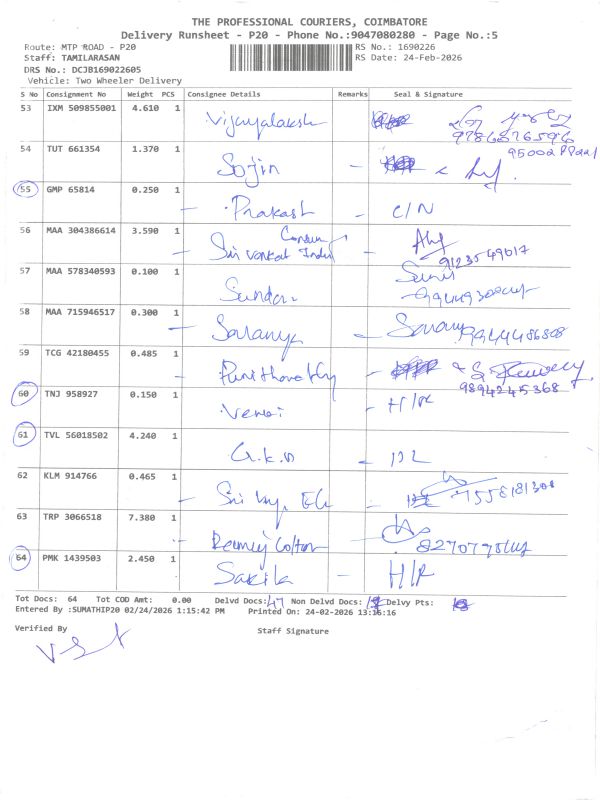 THE PROFESSIONAL COURIERS, COIMBATORE
Delivery Runsheet - P20 - Phone No.:9047080280 - Page No.:5
Route: MTP ROAD - P20 RS No.: 1690226
Staff: TAMILARASAN RS Date: 24-Feb-2026
DRS No.: DCJB169022605
Vehicle: Two Wheeler Delivery
S No Consignment No Weight PCS Consignee Details Remarks Seal & Signature
53 IXM 509855001 4.610 1 Vijayalaksh
54 TUT 661354 1.370 1 Sojin
55 GMP 65814 0.250 1 - Prakash - C/N
56 MAA 304386614 3.590 1 - Sri Venkat Indu - 9123549617
57 MAA 578340593 0.100 1 Sundar
58 MAA 715946517 0.300 1 - Saranya - Saranya
59 TCG 42180455 0.485 1 - 9894245368
60 TNJ 958927 0.150 1 - H/R
61 TVL 56018502 4.240 1 G.K.D -
62 KLM 914766 0.465 1 - Sri
63 TRP 3066518 7.380 1 -
64 PMK 1439503 2.450 1 Sakila - H/R
Tot Docs: 64 Tot COD Amt: 0.00 Delvd Docs: 47 Non Delvd Docs: Delvy Pts:
Entered By :SUMATHIP20 02/24/2026 1:15:42 PM Printed On: 24-02-2026 13:16:16
Verified By Staff Signature